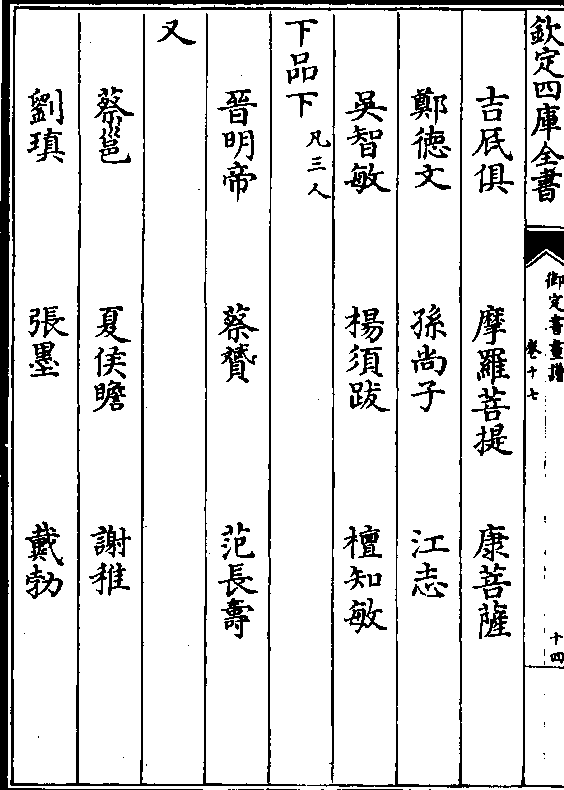 欽定四庫全書
御定書畫譜
卷十七
十四
吉厎俱 摩羅菩提 康菩薩
鄭徳文 孫尚子 江志
吳智敏 楊須跋 檀知敏
下品下 凡三人
晉明帝 蔡贇 范長壽
又
蔡邕 夏侯瞻 謝稚
劉瑱 張墨 戴勃